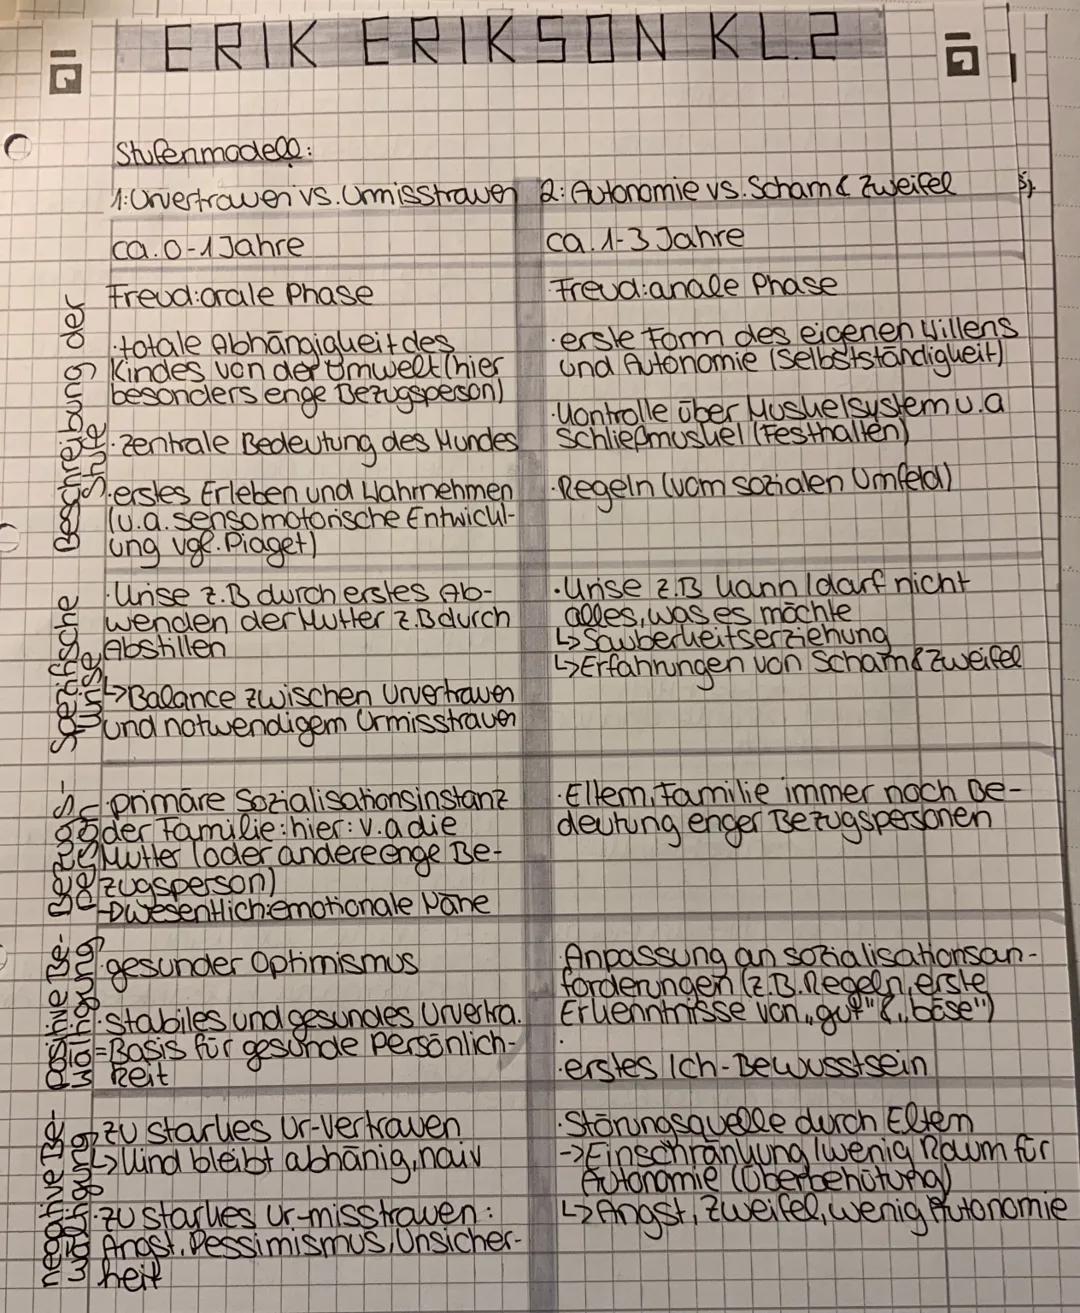 ERIK ERIKSON KL.2
Stufenmodell:
1: Urvertrauen vs. Urmisstrauen
ca. 0-1 Jahre
Freud: orale Phase
Beschreibung der
Stufe
· totale Abhängigkeit des
Kindes von der Umwelt (hier
besonders enge Bezugsperson)
· zentrale Bedeutung des Mundes
· erstes Erleben und Wahrnehmen
(u.a. sensomotorische Entwickl-
ung vgl. Piaget)
Spezifische
Krise
· Krise z.B durch erstes Ab-
wenden der Mutter z.B durch
Abstillen
↳ Balance zwischen Urvertrauen
und notwendigem Urmisstrauen
· primäre Sozialisationsinstanz
der Familie: hier: v.a die
Mutter (oder andere enge Be-
zugsperson)
→ wesentlich: emotionale Nähe
positive Be-
wältigung
· gesunder Optimismus
· stabiles und gesundes Urvertra.
= Basis für gesunde Persönlich-
keit
negative Be-
wältigung
· zu starkes Ur-Vertrauen
↳ Kind bleibt abhänig, naiv
· zu starkes Ur-misstrauen:
Angst, Pessimismus, Unsicher-
heit
2: Autonomie vs. Scham & Zweifel
ca. 1-3 Jahre
Freud: anale Phase
· erste Form des eigenen Willens
und Autonomie (Selbstständigkeit)
· Kontrolle über Muskelsystem u.a
Schließmuskel (Festhalten)
· Regeln (vom sozialen Umfeld)
· Krise z.B kann/darf nicht
alles, was es möchte
↳ Sauberkeitserziehung
↳ Erfahrungen von Scham & Zweifel
· Eltern, Familie immer noch Be-
deutung enger Bezugspersonen
· Anpassung an sozialisationsan-
forderungen (z.B. Regeln, erste
Erkenntnisse von „gut" & „böse")
· erstes Ich-Bewusstsein
· Störungsquelle durch Eltern
→ Einschränkung (wenig Raum für
Autonomie (Überbehütung)
↳ Angst, Zweifel, wenig Autonomie